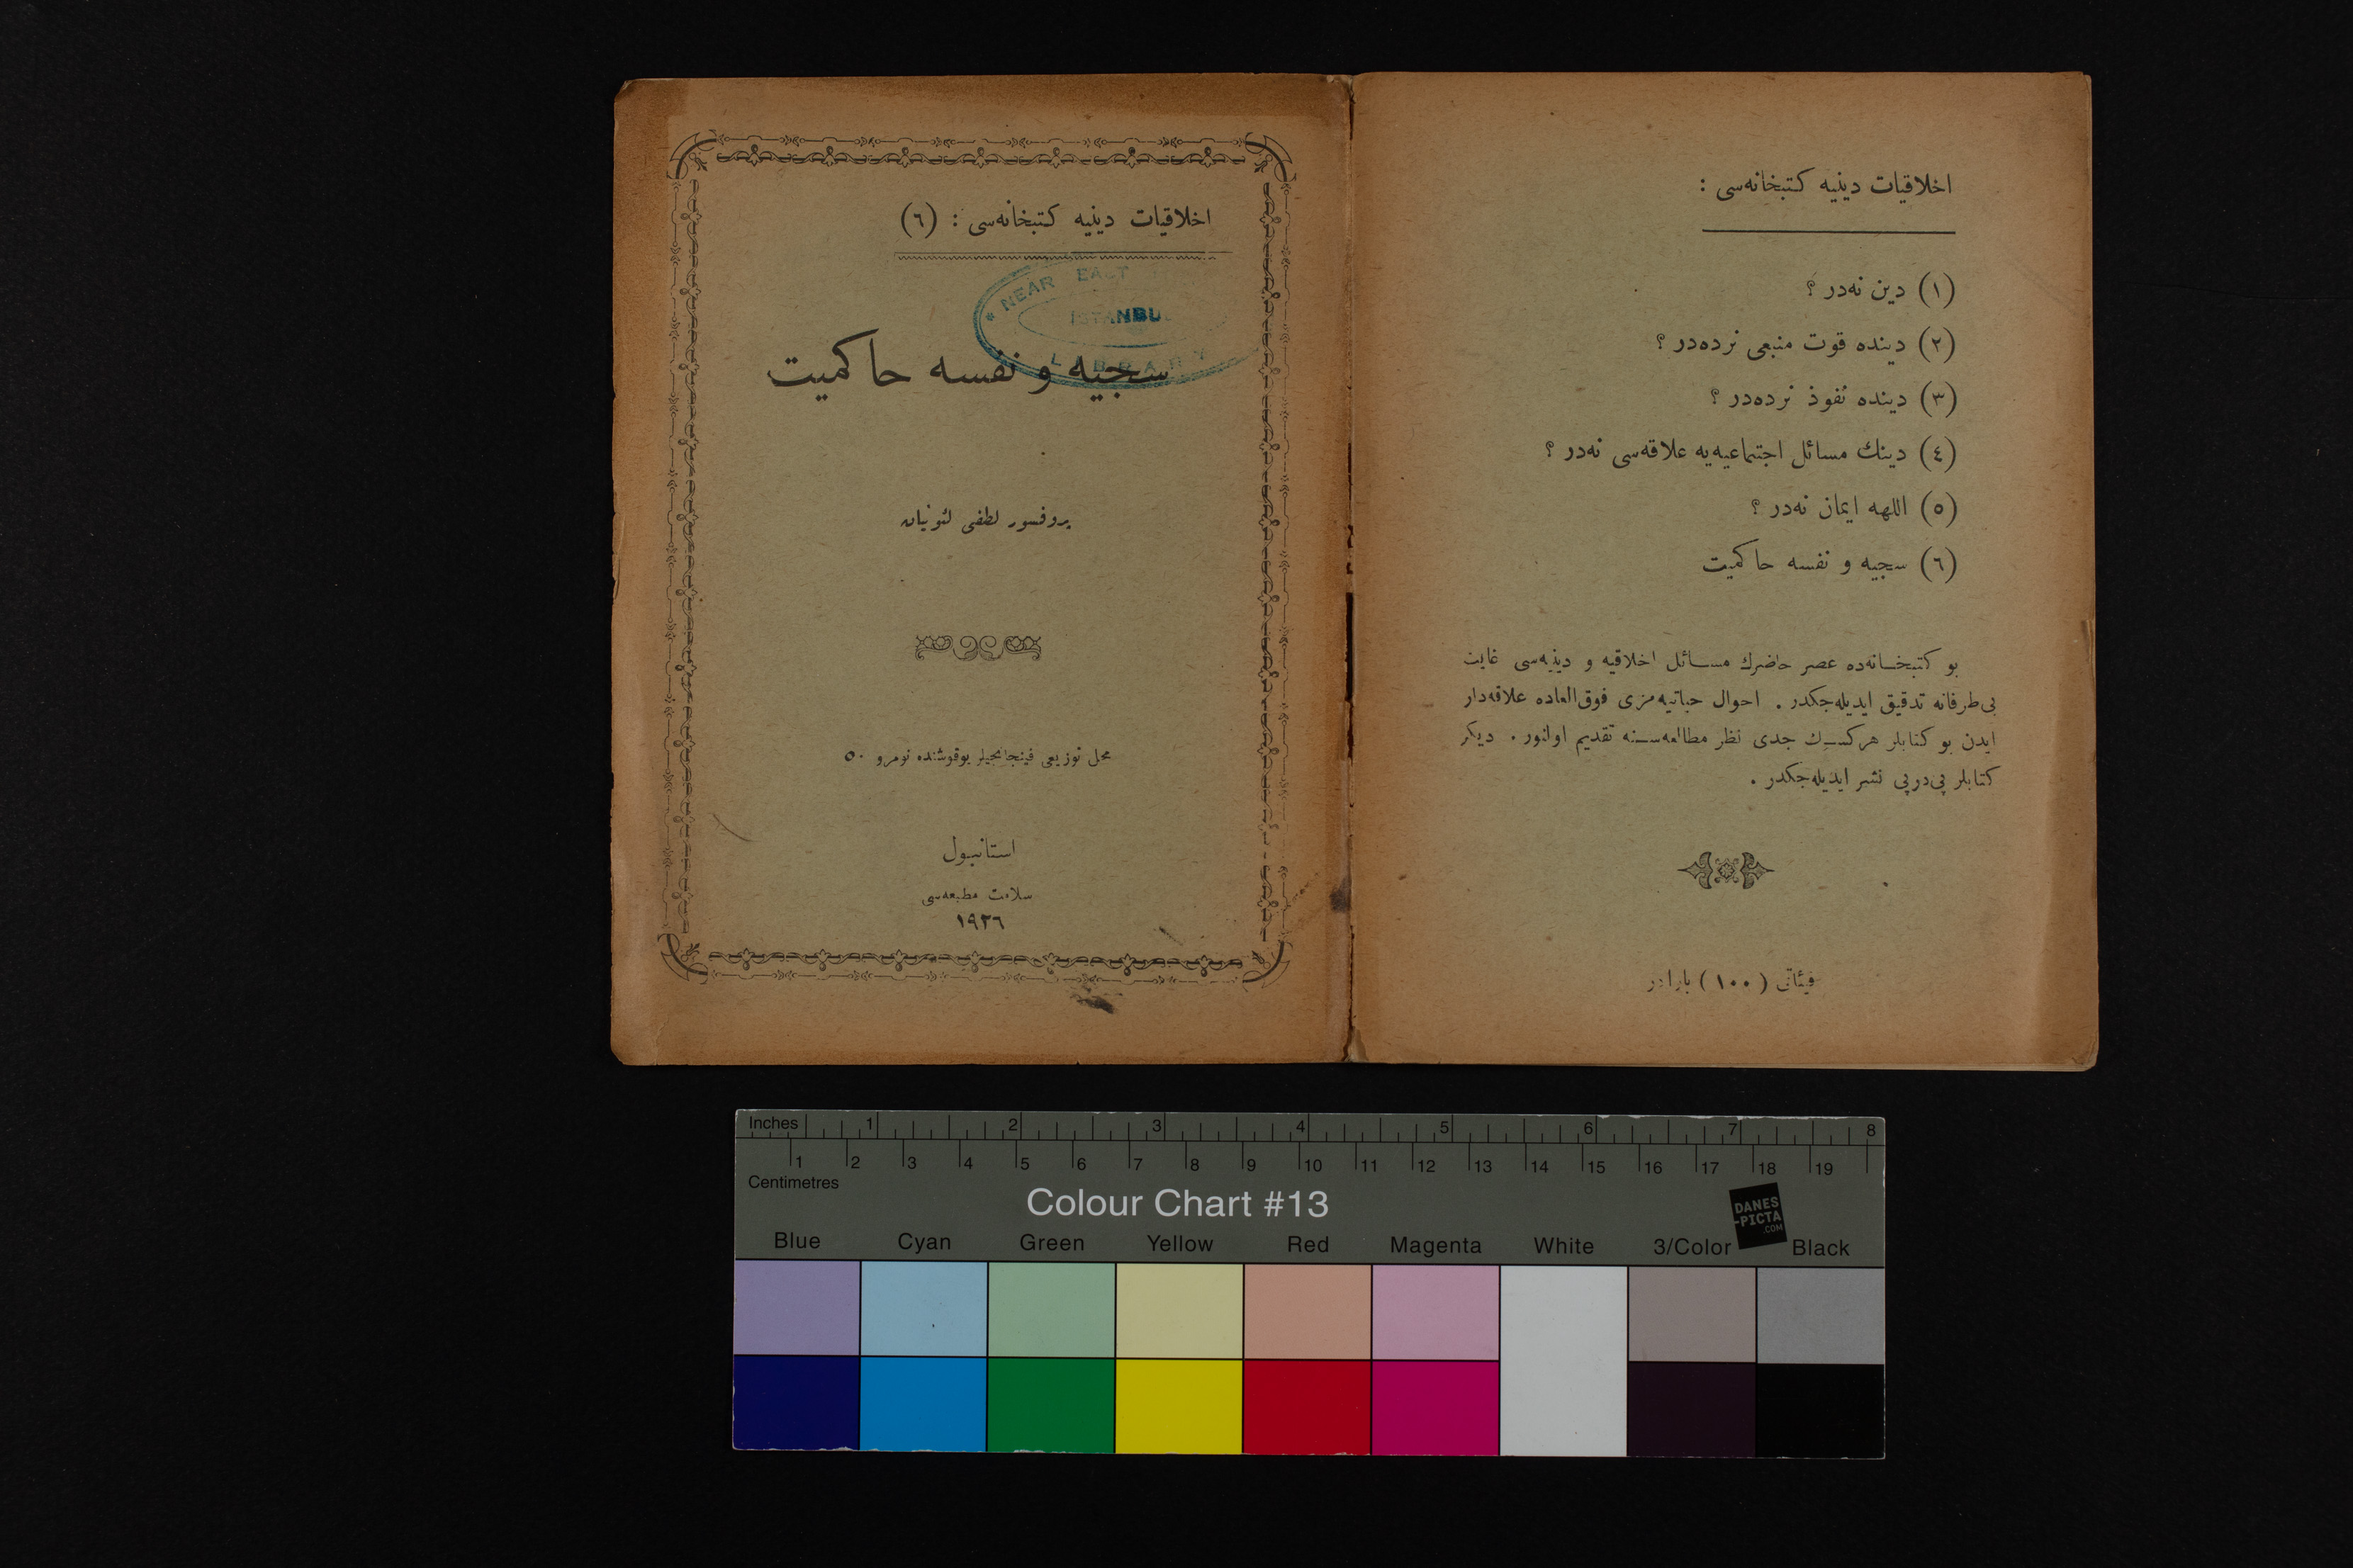 اخلاقیات دینیه کتبخانه‌سی : (٦)
NEAR EAST
ISTANBUL
LIBRARY
سجیه و نفسه حاکمیت
پروفسور لطفی لئونیان
محل توزیعی فینجانجیلر یوقوشنده نومرو ٥٠
استانبول
سلامت مطبعه‌سی
١٩٢٦
اخلاقیات دینیه کتبخانه‌سی :
(١) دین نه‌در ؟
(٢) دینده قوت منبعی نرده‌در ؟
(٣) دینده نفوذ نرده‌در ؟
(٤) دینك مسائل اجتماعیه‌یه علاقه‌سی نه‌در ؟
(٥) اللهه ایمان نه‌در ؟
(٦) سجیه و نفسه حاکمیت
بو کتبخانه‌ده عصر حاضرك مسائل اخلاقیه و دینیه‌سی غایت
بی‌طرفانه تدقیق ایدیله‌جکدر . احوال حیاتیه‌مزی فوق‌العاده علاقه‌دار
ایدن بو کتابلر هرکسك جدی نظر مطالعه‌سنه تقدیم اولنور . دیکر
کتابلر پی‌درپی نشر ایدیله‌جکدر .
فیئاتی ( ١٠٠ ) پارادر
Inches 1 2 3 4 5 6 7 8
1 2 3 4 5 6 7 8 9 10 11 12 13 14 15 16 17 18 19
Centimetres
Colour Chart #13
DANES
-PICTA
.COM
Blue Cyan Green Yellow Red Magenta White 3/Color Black